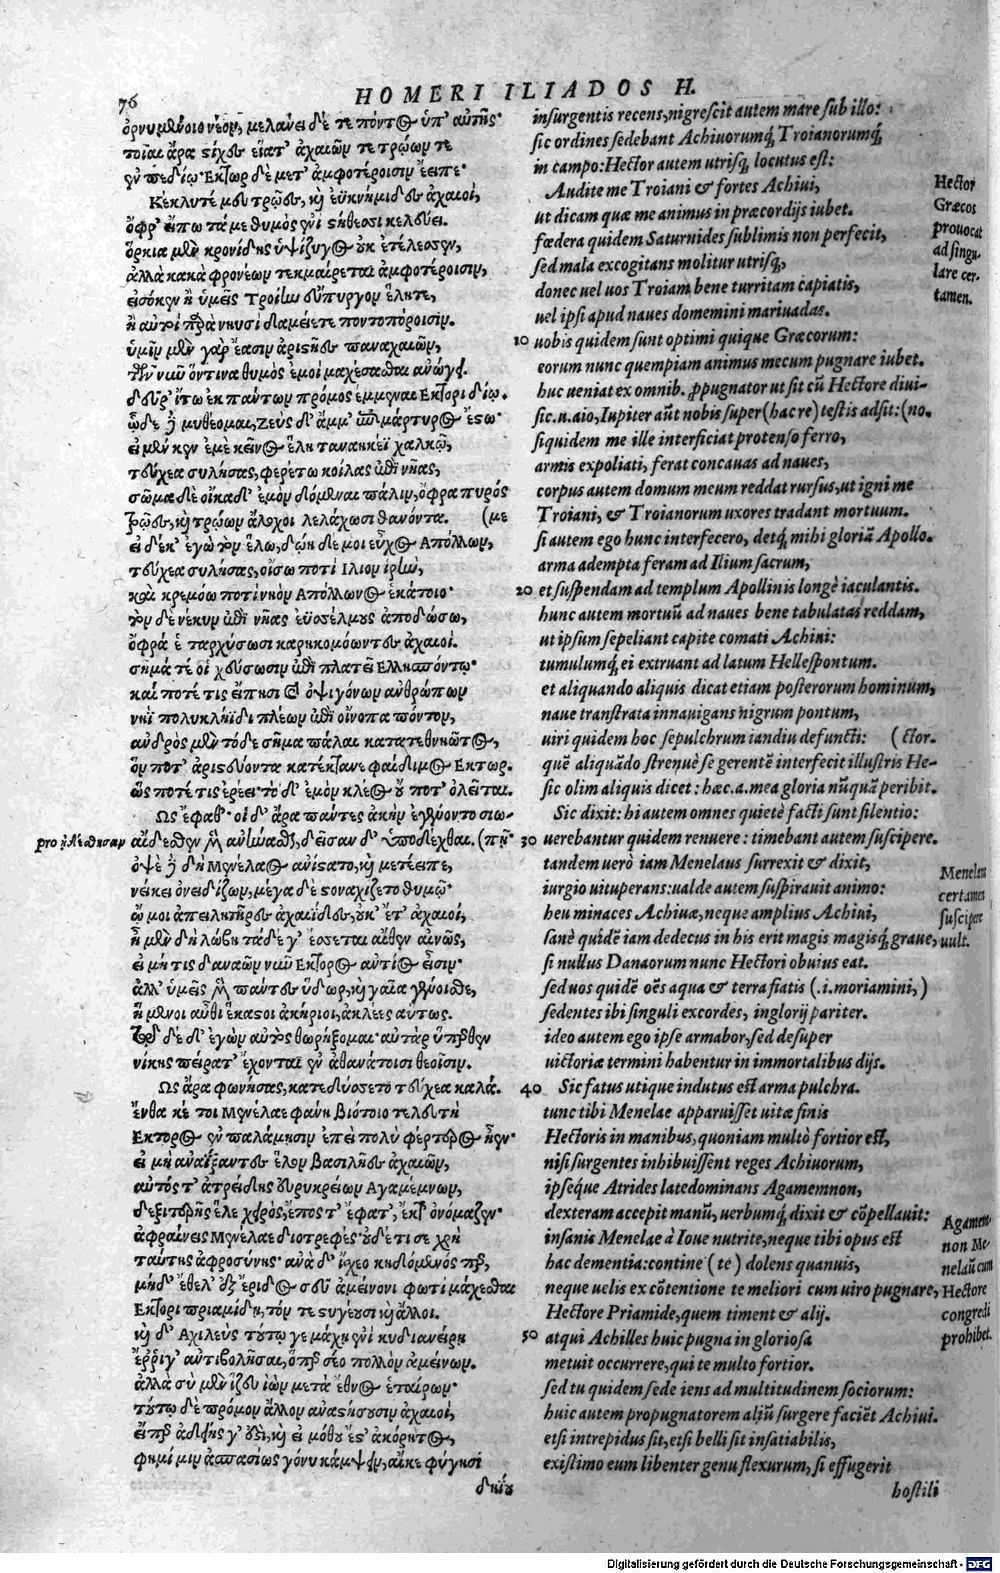 76
HOMERI ILIADOS H.
ὀρνυμένοιο νέον, μελάνει δέ τε πόντος ὑπ' αὐτῆς·
τοῖαι ἄρα στίχες εἵατ' ἀχαιῶν τε τρώων τε
ἐν πεδίῳ· Εκτωρ δὲ μετ' ἀμφοτέροισιν ἔειπε·
Κέκλυτέ μευ τρῶες, καὶ ἐϋκνήμιδες ἀχαιοί,
ὄφρ' εἴπω τά με θυμὸς ἐνὶ στήθεσι κελεύει.
ὅρκια μὲν κρονίδης ὑψίζυγος οὐκ ἐτέλεσσεν,
ἀλλὰ κακὰ φρονέων τεκμαίρεται ἀμφοτέροισιν,
εἰσόκεν ἢ ὑμεῖς Τροίην εὔπυργον ἕλητε,
ἢ αὐτοὶ παρὰ νηυσὶ δαμείετε ποντοπόροισιν.
ὑμῖν μὲν γὰρ ἔασιν ἀριστῆες παναχαιῶν,
τῶν νῦν ὅντινα θυμὸς ἐμοὶ μαχέσασθαι ἀνώγει.
δεῦρ' ἴτω ἐκ πάντων πρόμος ἔμμεναι Εκτορι δίῳ.
ὧδε δὲ μυθέομαι, Ζεὺς δ' ἄμμ' ἐπιμάρτυρος ἔστω·
εἰ μέν κεν ἐμὲ κεῖνος ἕλη ταναηκέϊ χαλκῷ,
τεύχεα συλήσας, φερέτω κοίλας ἐπὶ νῆας,
σῶμα δὲ οἴκαδ' ἐμὸν δόμεναι πάλιν, ὄφρα πυρός
τρῶες, καὶ τρώων ἄλοχοι λελάχωσι θανόντα. (με
εἰ δέ κ' ἐγὼ τὸν ἕλω, δώῃ δέ μοι εὖχος Απόλλων,
τεύχεα συλήσας, οἴσω ποτὶ Ιλιον ἱρὴν,
καὶ κρεμόω ποτὶ νηὸν Απόλλωνος ἑκάτοιο·
τὸν δὲ νέκυν ἐπὶ νῆας ἐϋσέλμους ἀποδώσω,
ὄφρά ἑ ταρχύσωσι καρηκομόωντες ἀχαιοί.
σῆμά τέ οἱ χεύσωσιν ἐπὶ πλατεῖ Ελλησπόντῳ·
καί ποτέ τις εἴπησι καὶ ὀψιγόνων ἀνθρώπων
νηῒ πολυκλήϊδι πλέων ἐπὶ οἴνοπα πόντον,
ἀνδρὸς μὲν τόδε σῆμα πάλαι κατατεθνηῶτος,
ὅν ποτ' ἀριστεύοντα κατέκτανε φαίδιμος Εκτωρ.
ὥς ποτέ τις ἐρέει· τὸ δ' ἐμὸν κλέος οὔ ποτ' ὀλεῖται.
Ως ἔφαθ'· οἱ δ' ἄρα πάντες ἀκὴν ἐγένοντο σιω-
pro ᾐδέσθησαν
αἴδεσθεν μὲν ἀνήνασθαι, δεῖσαν δ' ὑποδέχθαι. (πῇ·
ὀψὲ δὲ δὴ Μενέλαος ἀνίστατο, καὶ μετέειπε,
νείκει ὀνειδίζων, μέγα δὲ στοναχίζετο θυμῷ·
ὤ μοι ἀπειλητῆρες ἀχαιΐδες, οὐκ ἔτ' ἀχαιοί,
ἦ μὲν δὴ λώβη τάδε γ' ἔσσεται αἰνόθεν αἰνῶς,
εἰ μή τις δαναῶν νῦν Εκτορος ἀντίος εἶσιν·
ἀλλ' ὑμεῖς μὲν πάντες ὕδωρ, καὶ γαῖα γένοισθε,
ἥμενοι αὖθι ἕκαστοι ἀκήριοι, ἀκλεὲς αὔτως.
τῷδε δ' ἐγὼν αὐτὸς θωρήξομαι· αὐτὰρ ὕπερθεν
νίκης πείρατ' ἔχονται ἐν ἀθανάτοισι θεοῖσιν.
Ως ἄρα φωνήσας, κατεδύσετο τεύχεα καλά.
ἔνθα κέ τοι Μενέλαε φάνη βιότοιο τελευτὴ
Εκτορος ἐν παλάμησιν ἐπεὶ πολὺ φέρτερος ἦεν·
εἰ μὴ ἀναΐξαντες ἕλον βασιλῆες ἀχαιῶν,
αὐτός τ' ἀτρείδης εὐρυκρείων Αγαμέμνων,
δεξιτερῆς ἕλε χειρὸς, ἔπος τ' ἔφατ', ἔκ τ' ὀνόμαζεν·
ἀφραίνεις Μενέλαε διοτρεφὲς· οὐδέ τί σε χρὴ
ταύτης ἀφροσύνης· ἀνὰ δ' ἴσχεο κηδόμενός περ,
μὴ δ' ἔθελ' ἐξ ἔριδος σεῦ ἀμείνονι φωτὶ μάχεσθαι
Εκτορι πριαμίδῃ, τόν τε στυγέουσι καὶ ἄλλοι.
καὶ δ' Αχιλεὺς τούτῳ γε μάχῃ ἐνὶ κυδιανείρῃ
ἔρριγ' ἀντιβολῆσαι, ὅπερ σέο πολλὸν ἀμείνων.
ἀλλὰ σὺ μὲν ἵζευ ἰὼν μετὰ ἔθνος ἑταίρων·
τούτῳ δὲ πρόμον ἄλλον ἀναστήσουσιν ἀχαιοί,
εἴπερ ἀδειής γ' ἐστὶ, καὶ εἰ μόθου ἔστ' ἀκόρητος,
φημί μιν ἀσπασίως γόνυ κάμψειν, αἴκε φύγησι
δηΐου
insurgentis recens, nigrescit autem mare sub illo:
sic ordines sedebant Achiuorumq́ Troianorumq́
in campo: Hector autem utrisq́ locutus est:
Audite me Troiani & fortes Achiui,
ut dicam quæ me animus in præcordijs iubet.
fœdera quidem Saturnides sublimis non perfecit,
sed mala excogitans molitur utrisq́,
donec uel uos Troiam bene turritam capiatis,
uel ipsi apud naues domemini mariuadas.
10 uobis quidem sunt optimi quique Græcorum:
eorum nunc quempiam animus mecum pugnare iubet.
huc ueniat ex omnib. ꝓpugnator ut sit cũ Hectore diui-
sic.n.aio, Iupiter aũt nobis super (hac re) testis adsit: (no.
siquidem me ille interficiat protenso ferro,
armis expoliati, ferat concauas ad naues,
corpus autem domum meum reddat rursus, ut igni me
Troiani, & Troianorum uxores tradant mortuum.
si autem ego hunc interfecero, detq́ mihi gloriã Apollo.
arma adempta feram ad Ilium sacrum,
20 et suspendam ad templum Apollinis longè iaculantis.
hunc autem mortuũ ad naues bene tabulatas reddam,
ut ipsum sepeliant capite comati Achiui:
tumulumq́ ei extruant ad latum Hellespontum.
et aliquando aliquis dicat etiam posterorum hominum,
naue transtrata innauigans nigrum pontum,
uiri quidem hoc sepulchrum iandiu defuncti: (ctor.
quẽ aliquãdo strenuè se gerentẽ interfecit illustris He-
sic olim aliquis dicet: hæc.a.mea gloria nũquã peribit.
Sic dixit: hi autem omnes quietè facti sunt silentio:
30 uerebantur quidem renuere: timebant autem suscipere.
tandem uerò iam Menelaus surrexit & dixit,
iurgio uituperans: ualde autem suspirauit animo:
heu minaces Achiuæ, neque amplius Achiui,
sanè quidẽ iam dedecus in his erit magis magisq́ graue,
si nullus Danaorum nunc Hectori obuius eat.
sed uos quidẽ oẽs aqua & terra fiatis (.i.moriamini,)
sedentes ibi singuli excordes, inglorij pariter.
ideo autem ego ipse armabor, sed desuper
uictoriæ termini habentur in immortalibus dijs.
40 Sic fatus utique indutus est arma pulchra.
tunc tibi Menelae apparuisset uitæ finis
Hectoris in manibus, quoniam multò fortior est,
nisi surgentes inhibuissent reges Achiuorum,
ipseque Atrides latedominans Agamemnon,
dexteram accepit manũ, uerbumq́ dixit & cõpellauit:
insanis Menelae à Ioue nutrite, neque tibi opus est
hac dementia: contine (te) dolens quanuis,
neque uelis ex cõtentione te meliori cum uiro pugnare,
Hectore Priamide, quem timent & alij.
50 atqui Achilles huic pugna in gloriosa
metuit occurrere, qui te multo fortior.
sed tu quidem sede iens ad multitudinem sociorum:
huic autem propugnatorem aliũ surgere faciẽt Achiui.
etsi intrepidus sit, etsi belli sit insatiabilis,
existimo eum libenter genu flexurum, si effugerit
hostili
Hector
Græcos
prouocat
ad singu-
lare cer-
tamen.
Menelaus
certamen
suscipere
uult.
Agamem-
non Me-
nelaũ cum
Hectore
congredi
prohibet.
Digitalisierung gefördert durch die Deutsche Forschungsgemeinschaft - DFG